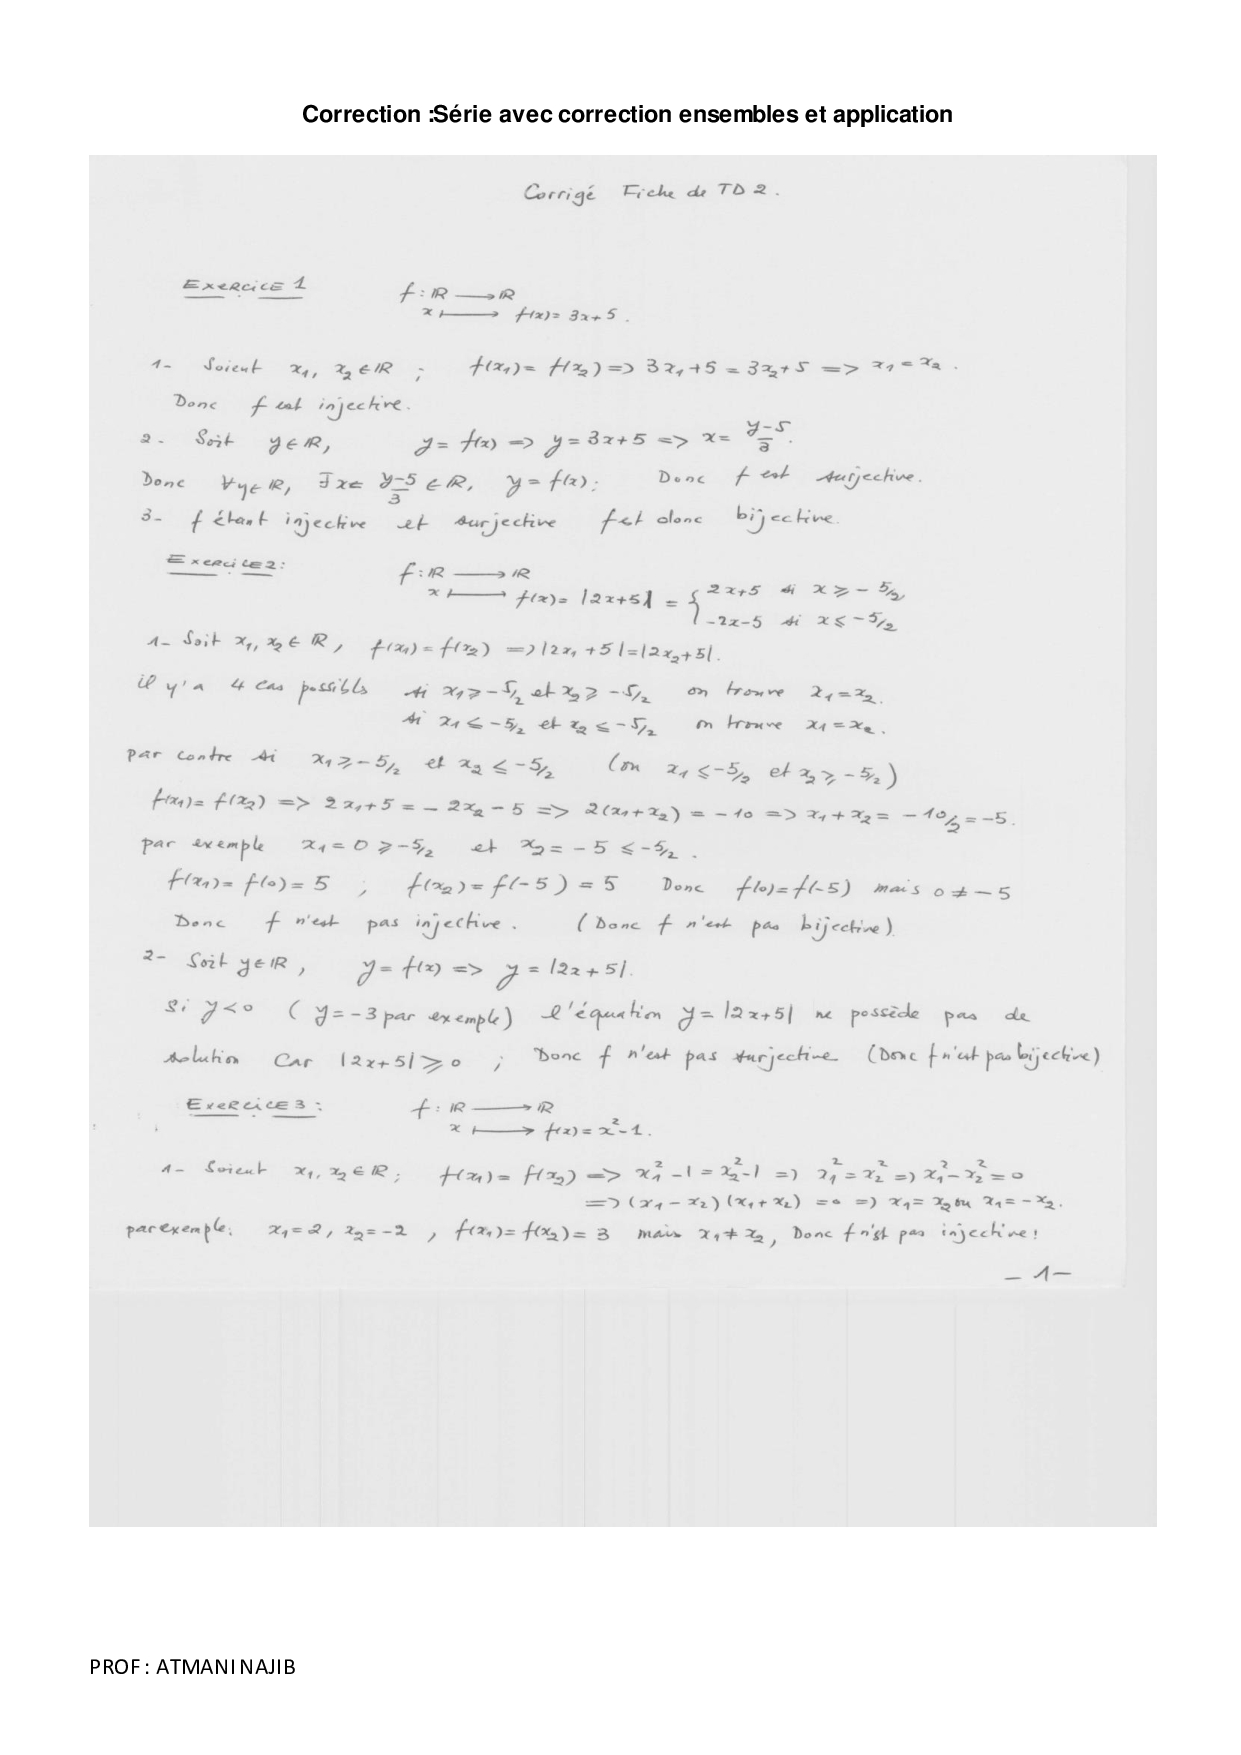 Correction :Série avec correction ensembles et application
Corrigé Fiche de TD 2.
Exercice 1 f : ℝ ⟶ ℝ
x ⟼ f(x) = 3x+5.
1- Soient x₁, x₂ ∈ ℝ ; f(x₁) = f(x₂) => 3x₁+5 = 3x₂+5 => x₁ = x₂.
Donc f est injective.
2- Soit y ∈ ℝ, y = f(x) => y = 3x+5 => x = (y-5)/3.
Donc ∀y ∈ ℝ, ∃x = (y-5)/3 ∈ ℝ, y = f(x); Donc f est surjective.
3- f étant injective et surjective f est donc bijective.
Exercice 2: f : ℝ ⟶ ℝ
x ⟼ f(x) = |2x+5| = { 2x+5 si x ⩾ -5/2
-2x-5 si x ⩽ -5/2
1- Soit x₁, x₂ ∈ ℝ, f(x₁) = f(x₂) => |2x₁+5| = |2x₂+5|.
il y'a 4 cas possibls si x₁ ⩾ -5/2 et x₂ ⩾ -5/2 on trouve x₁ = x₂.
si x₁ ⩽ -5/2 et x₂ ⩽ -5/2 on trouve x₁ = x₂.
par contre si x₁ ⩾ -5/2 et x₂ ⩽ -5/2 (ou x₁ ⩽ -5/2 et x₂ ⩾ -5/2)
f(x₁) = f(x₂) => 2x₁+5 = -2x₂-5 => 2(x₁+x₂) = -10 => x₁+x₂ = -10/2 = -5.
par exemple x₁ = 0 ⩾ -5/2 et x₂ = -5 ⩽ -5/2.
f(x₁) = f(0) = 5 ; f(x₂) = f(-5) = 5 Donc f(0) = f(-5) mais 0 ≠ -5
Donc f n'est pas injective. (Donc f n'est pas bijective)
2- Soit y ∈ ℝ, y = f(x) => y = |2x+5|.
Si y < 0 (y = -3 par exemple) l'équation y = |2x+5| ne possède pas de
solution Car |2x+5| ⩾ 0 ; Donc f n'est pas surjective (Donc f n'est pas bijective)
Exercice 3: f : ℝ ⟶ ℝ
x ⟼ f(x) = x²-1.
1- Soient x₁, x₂ ∈ ℝ ; f(x₁) = f(x₂) => x₁²-1 = x₂²-1 => x₁² = x₂² => x₁²-x₂² = 0
=> (x₁-x₂)(x₁+x₂) = 0 => x₁ = x₂ ou x₁ = -x₂.
par exemple: x₁ = 2, x₂ = -2, f(x₁) = f(x₂) = 3 mais x₁ ≠ x₂, Donc f n'est pas injective!
- 1 -
PROF : ATMANI NAJIB